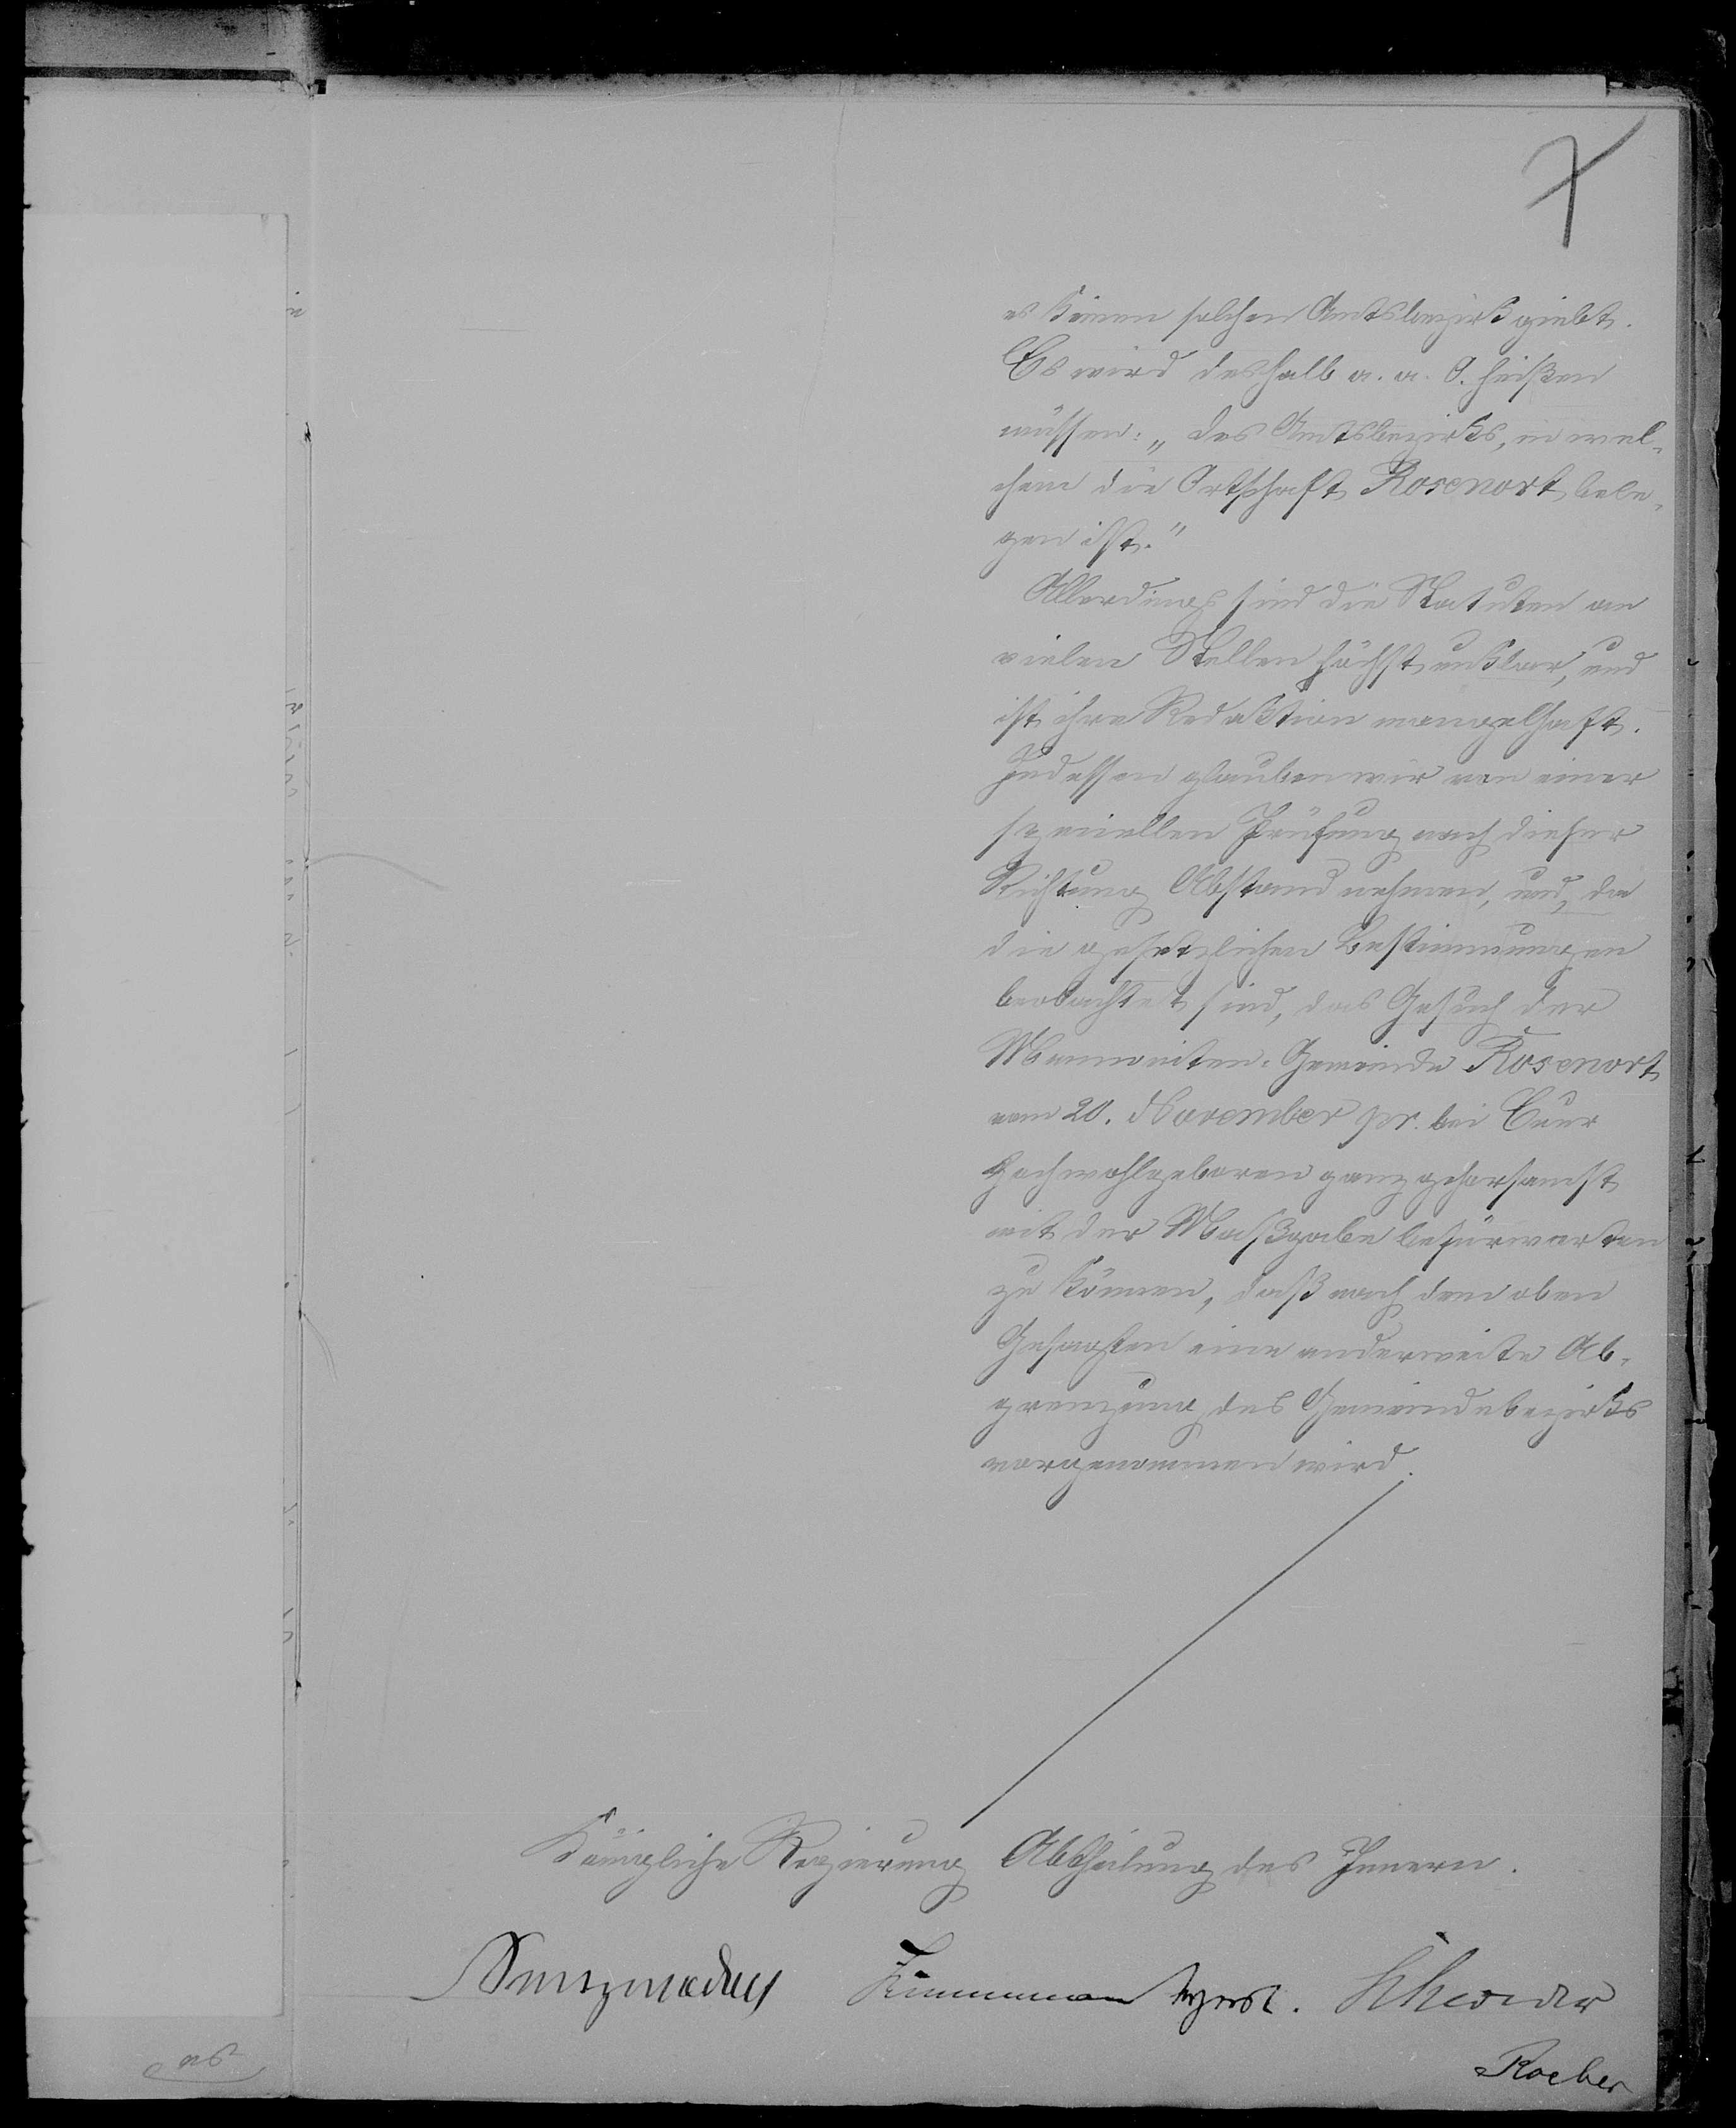 7
es keinen solchen Amtsbezirk giebt.
Es wird deshalb a. a. O. heißen
müssen: „des Amtsbezirks, in wel-
chem die Ortschaft Rosenort bele-
gen ist."
Allerdings sind die Statuten an
vielen Stellen höchst unklar, und
ist ihre Redaktion mangelhaft.
Indessen glauben wir von einer
speziellen Prüfung nach dieser
Richtung Abstand nehmen, und, da
die gesetzlichen Bestimmungen
beobachtet sind, das Gesuch der
Mennoniten-Gemeinde Rosenort
vom 20. November pr. bei Euer
Hochwohlgeboren ganz gehorsamst
mit der Maßgabe befürworten
zu können, daß nach dem oben
Gesagten eine anderweite Ab-
grenzung des Gemeindebezirks
vorgenommen wird.
Königliche Regierung Abtheilung des Innern.
Roeber